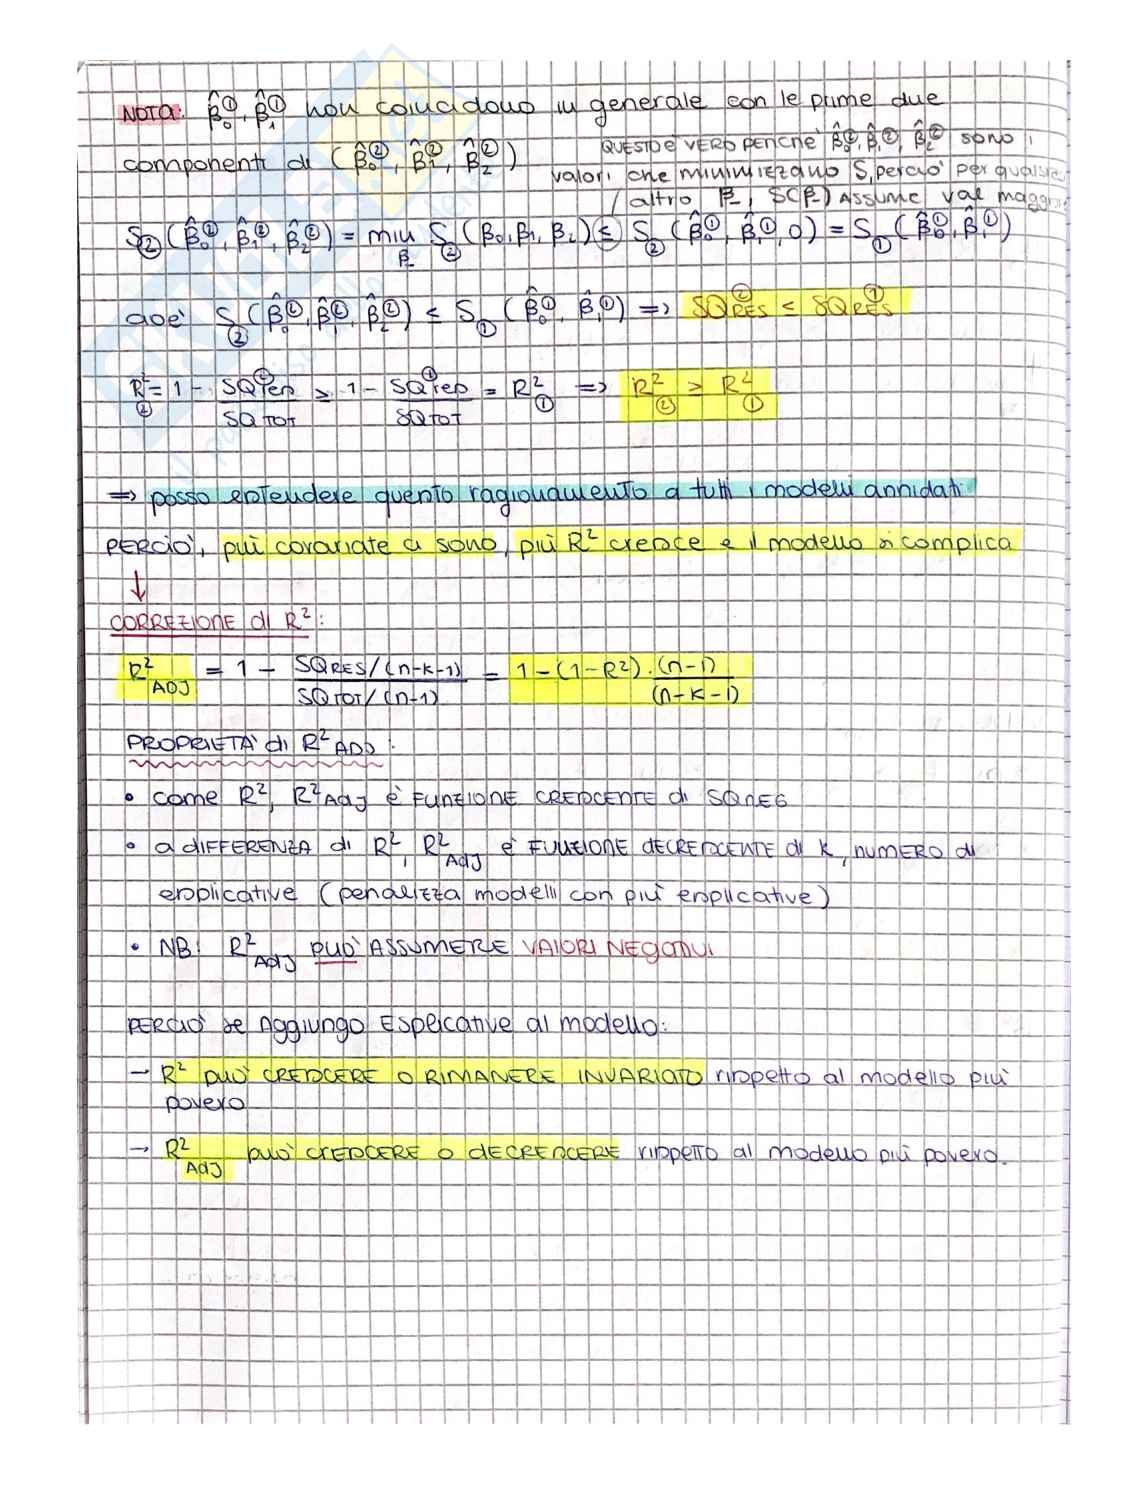 NOTA: β̂₀①, β̂₁① non coincidono in generale con le prime due
componenti di (β̂₀②, β̂₁②, β̂₂②)
QUESTO È VERO PERCHÈ β̂₀②, β̂₁②, β̂₂② SONO i
valori che MINIMIZZANO S, perciò per qualsiasi
altro β, S(β) ASSUME val maggiore
S②(β̂₀②, β̂₁②, β̂₂②) = min_β S②(β₀, β₁, β₂) ≤ S②(β̂₀①, β̂₁①, 0) = S①(β̂₀①, β̂₁①)
cioè S②(β̂₀②, β̂₁②, β̂₂②) ≤ S①(β̂₀①, β̂₁①) => SQRES② ≤ SQRES①
R²② = 1 - SQres② / SQTOT ≥ 1 - SQres① / SQTOT = R²① => R²② ≥ R²①
=> posso estendere questo ragionamento a tutti i modelli annidati
PERCIÒ, più covariate ci sono, più R² cresce e il modello si complica
↓
CORREZIONE di R²:
R²ADJ = 1 - SQRES/(n-k-1) / SQTOT/(n-1) = 1-(1-R²)·(n-1)/(n-k-1)
PROPRIETÀ di R²ADJ:
• come R², R²Adj è FUNZIONE CRESCENTE di SQREG
• a dIFFERENZA di R², R²Adj è FUNZIONE dECRESCENTE di K, NUMERO di
esplicative (penalizza modelli con più esplicative)
• NB: R²Adj può ASSUMERE VALORI NEGATIVI
PERCIÒ se Aggiungo Esplicative al modello:
→ R² può CRESCERE O RIMANERE INVARIATO rispetto al modello più
povero
→ R²Adj può CRESCERE O dECRESCERE rispetto al modello più povero.